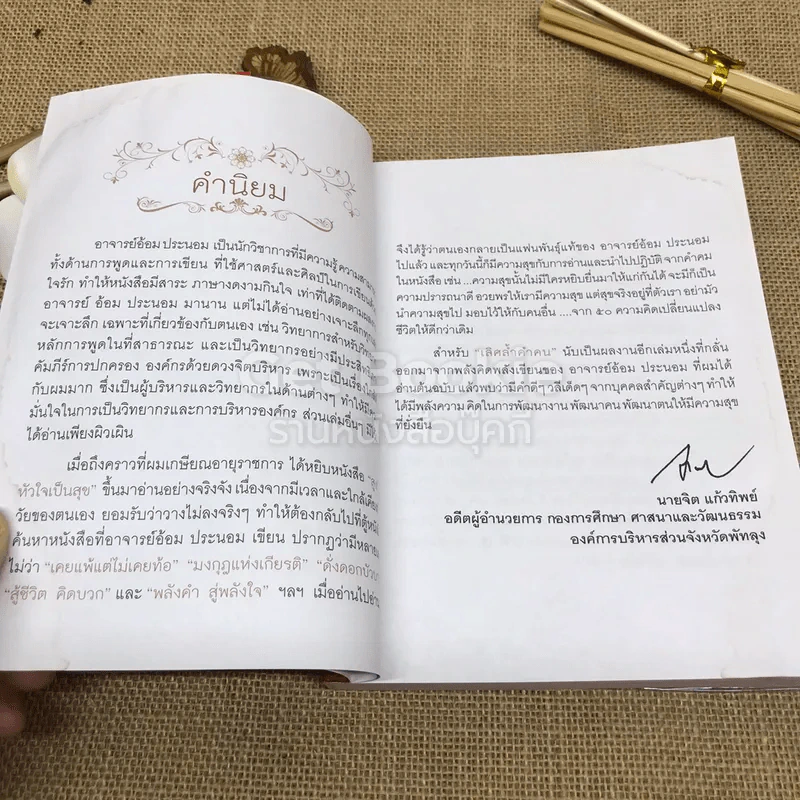 คำนิยม
อาจารย์อ้อม ประนอม เป็นนักวิชาการที่มีความรู้ ความสามารถ
ทั้งด้านการพูดและการเขียน ที่ใช้ศาสตร์และศิลป์ในการเขียน
ใจรัก ทำให้หนังสือมีสาระ ภาษางดงามกินใจ เท่าที่ได้ติดตามผลงาน
อาจารย์ อ้อม ประนอม มานาน แต่ไม่ได้อ่านอย่างเจาะลึก
จะเจาะลึก เฉพาะที่เกี่ยวข้องกับตนเอง เช่น วิทยาการสำหรับ
หลักการพูดในที่สาธารณะ และเป็นวิทยากรอย่างมี
คัมภีร์การปกครอง องค์กรด้วยดวงจิตบริหาร เพราะเป็นเรื่อง
กับผมมาก ซึ่งเป็นผู้บริหารและวิทยากรในด้านต่างๆ ทำให้
มั่นใจในการเป็นวิทยากรและการบริหารองค์กร ส่วนเล่มอื่นๆ
ได้อ่านเพียงผิวเผิน
เมื่อถึงคราวที่ผมเกษียณอายุราชการ ได้หยิบหนังสือ
หัวใจเป็นสุข” ขึ้นมาอ่านอย่างจริงจัง เนื่องจากมีเวลาและใกล้เคียง
วัยของตนเอง ยอมรับว่าวางไม่ลงจริงๆ ทำให้ต้องกลับไปที่ตู้หนังสือ
ค้นหาหนังสือที่อาจารย์อ้อม ประนอม เขียน ปรากฏว่ามีหลาย
ไม่ว่า “เคยแพ้แต่ไม่เคยท้อ” “มงกุฎแห่งเกียรติ” “ดั่งดอกบัว
“สู้ชีวิต คิดบวก” และ “พลังคำ สู่พลังใจ” ฯลฯ เมื่ออ่านไป
จึงได้รู้ว่าตนเองกลายเป็นแฟนพันธุ์แท้ของ อาจารย์อ้อม ประนอม
ไปแล้ว และทุกวันนี้ก็มีความสุขกับการอ่านและนำไปปฏิบัติ จากคำคม
ในหนังสือ เช่น ...ความสุขนั้นไม่มีใครหยิบยื่นมาให้แก่กันได้ จะมีก็เป็น
ความปรารถนาดี อวยพรให้เรามีความสุข แต่สุขจริงอยู่ที่ตัวเรา อย่ามัว
นำความสุขไป มอบไว้ให้กับคนอื่น ....จาก ๕๐ ความคิดเปลี่ยนแปลง
ชีวิตให้ดีกว่าเดิม
สำหรับ “เลิศล้ำคำคม” นับเป็นผลงานอีกเล่มหนึ่งที่กลั่น
ออกมาจากพลังคิดพลังเขียนของ อาจารย์อ้อม ประนอม ที่ผมได้
อ่านต้นฉบับ แล้วพบว่ามีคำดีๆ วลีเด็ดๆ จากบุคคลสำคัญต่างๆ ทำให้
ได้มีพลังความ คิดในการพัฒนางาน พัฒนาคน พัฒนาตนให้มีความสุข
ที่ยั่งยืน
นายจิต แก้วทิพย์
อดีตผู้อำนวยการ กองการศึกษา ศาสนาและวัฒนธรรม
องค์การบริหารส่วนจังหวัดพัทลุง
ร้านหนังสือบุ๊คกี้